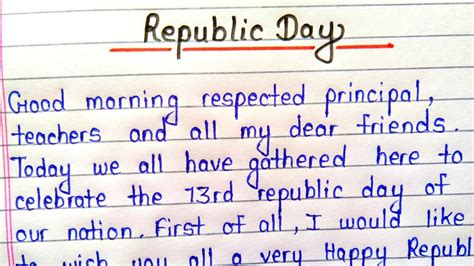 Republic Day
Good morning respected principal,
teachers and all my dear friends.
Today we all have gathered here to
celebrate the 73rd republic day of
our nation. First of all, I would like
to wish you all a very Happy Republ